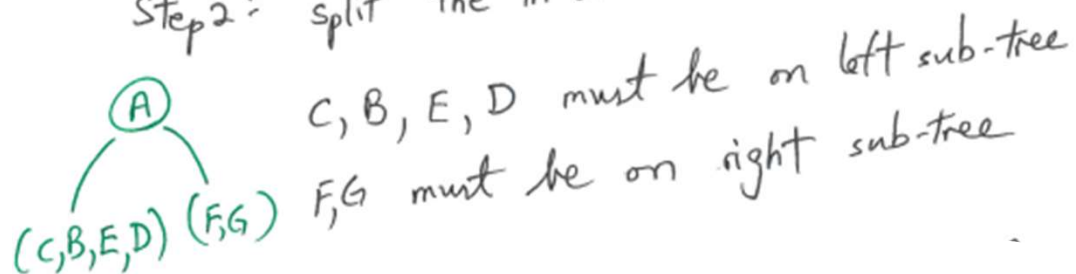 Step 2: split the
A
C, B, E, D must be on left sub-tree
F,G must be on right sub-tree
(C,B,E,D) (F,G)